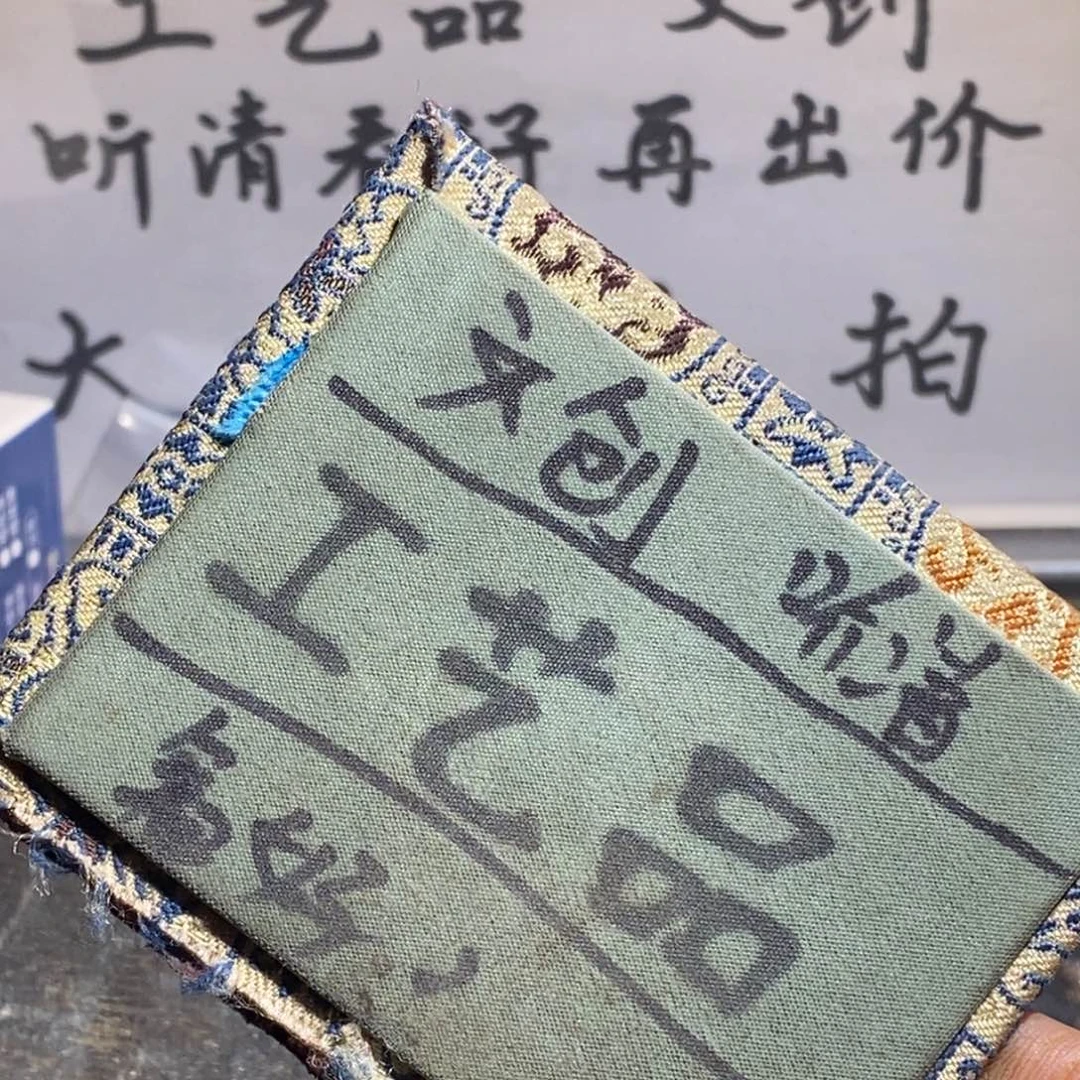 工艺品 文创
听清看好再出价
大 拍
文创 听清
工艺品
看好